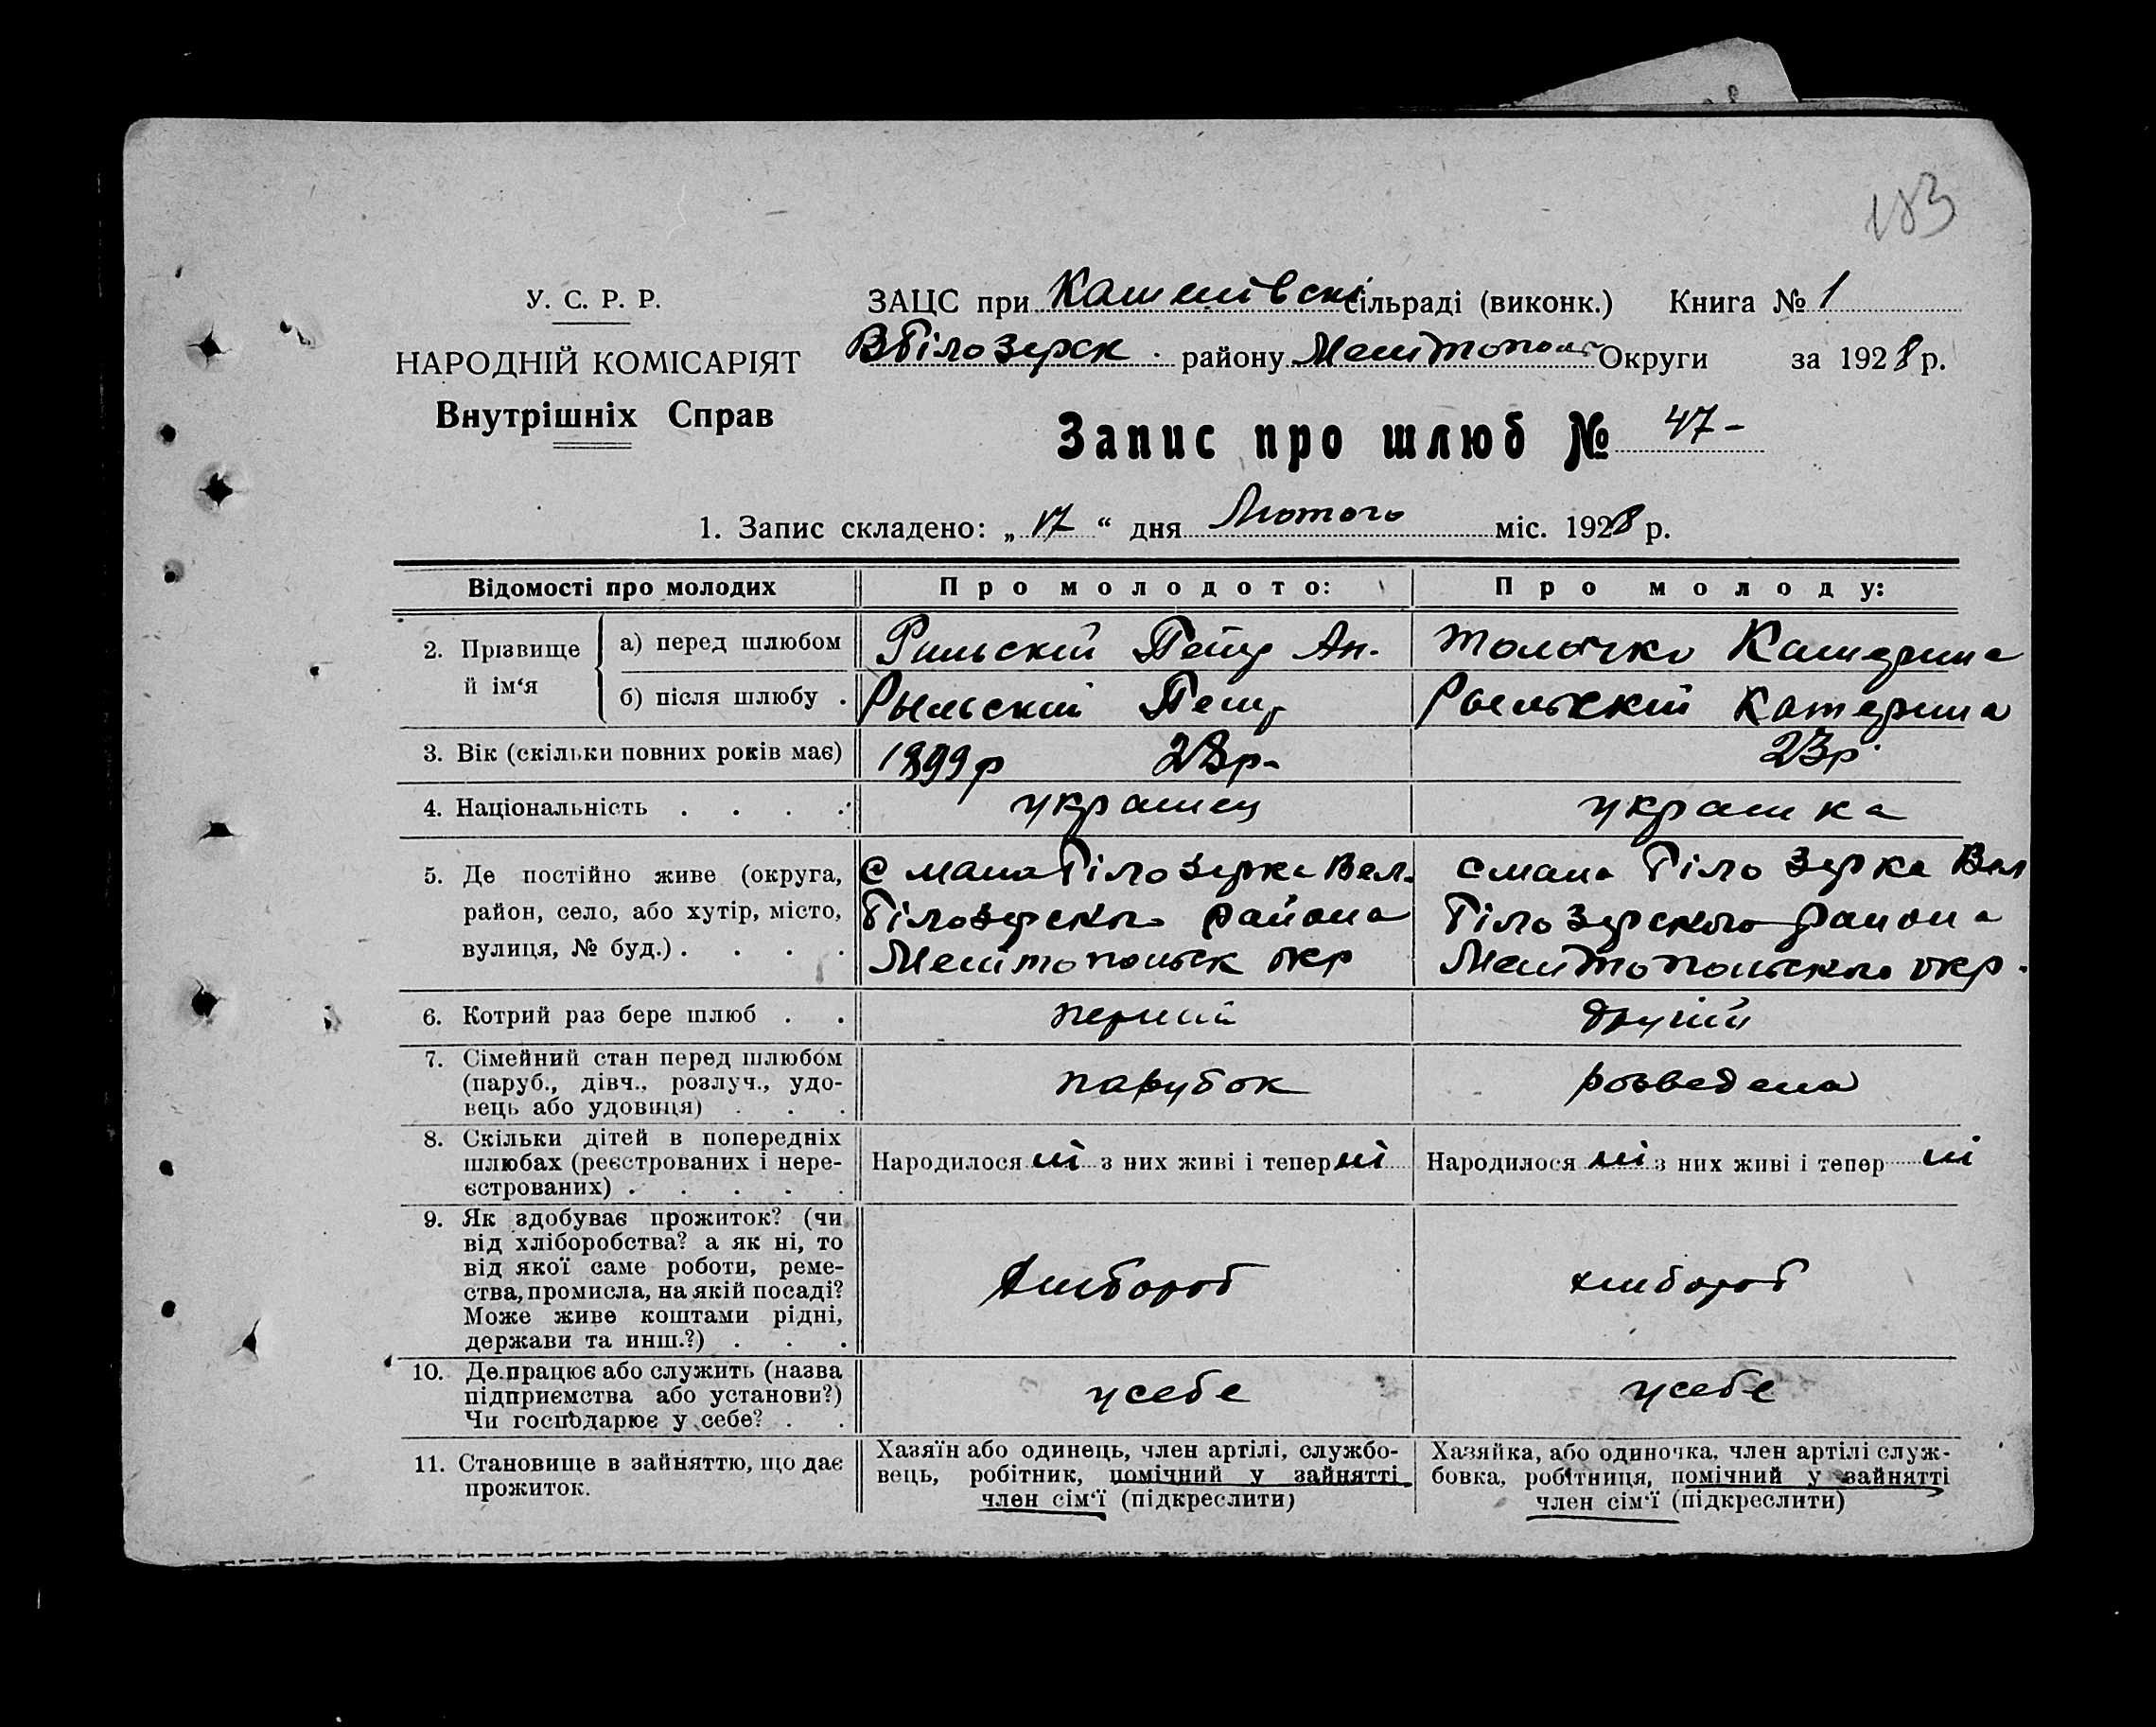 183
У. С. Р. Р.
НАРОДНІЙ КОМІСАРІЯТ
Внутрішніх Справ
ЗАЦС при сільраді (виконк.) Книга № 1
ВБілозерск. району Мелітопол Округи за 1928 р.
Запис про шлюб № 47-
1. Запис складено: „17“ дня Лютого міс. 1928 р.
Відомості про молодих Про молодого: Про молоду:
2. Прізвище й ім‘я
а) перед шлюбом Рильскій Петр Ан. Толочко Катерина
б) після шлюбу . Рыльскій Петр Рыльскій Катерина
3. Вік (скільки повних років має) 1899р 28р- 23р.
4. Національність . . . . украінец украінка
5. Де постійно живе (округа, район, село, або хутір, місто, вулиця, № буд.) . . . .
с мала Білозерка Вел.
Білозерского района
Мелітопольск окр
с мала Білозерка Вел
Білозерского района
Мелітопольского окр.
6. Котрий раз бере шлюб . . первий другій
7. Сімейний стан перед шлюбом (паруб., дівч., розлуч., удовець або удовиця) . . . парубок розведена
8. Скільки дітей в попередніх шлюбах (реєстрованих і нереєстрованих) . . . . .
Народилося ні з них живі і тепер ні
Народилося ні з них живі і тепер ні
9. Як здобуває прожиток? (чи від хліборобства? а як ні, то від якої саме роботи, ремества, промисла, на якій посаді? Може живе коштами рідні, держави та инш.?) . . . хлібороб хлібороб
10. Де працює або служить (назва підприємства або установи?) Чи господарює у себе? . . усебе усебе
11. Становище в зайняттю, що дає прожиток.
Хазяїн або одинець, член артілі, службовець, робітник, помічний у зайнятті член сім‘ї (підкреслити)
Хазяйка, або одиночка, член артілі службовка, робітниця, помічний у зайнятті член сім‘ї (підкреслити)